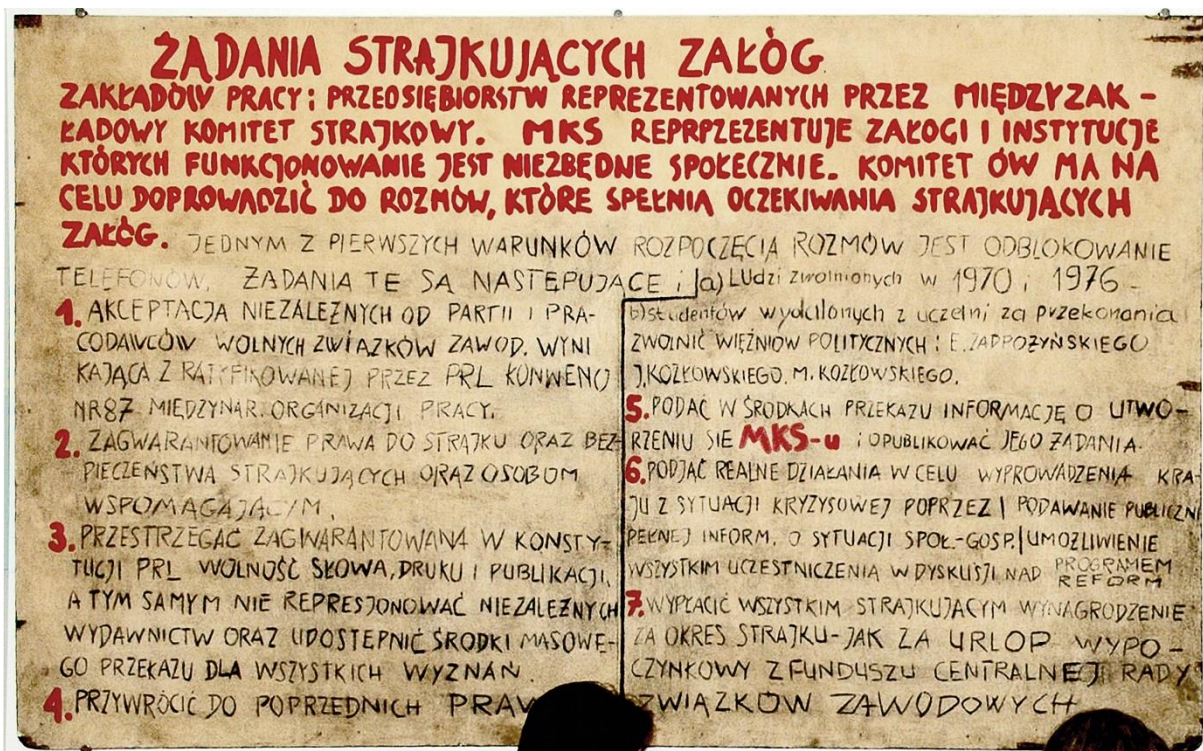 ŻĄDANIA STRAJKUJĄCYCH ZAŁÓG
ZAKŁADÓW PRACY i PRZEDSIĘBIORSTW REPREZENTOWANYCH PRZEZ MIĘDZYZAK-
ŁADOWY KOMITET STRAJKOWY. MKS REPRPZEZENTUJE ZAŁOGI I INSTYTUCJE
KTÓRYCH FUNKCJONOWANIE JEST NIEZBĘDNE SPOŁECZNIE. KOMITET ÓW MA NA
CELU DOPROWADZIĆ DO ROZMÓW, KTÓRE SPEŁNIĄ OCZEKIWANIA STRAJKUJĄCYCH
ZAŁÓG. JEDNYM Z PIERWSZYCH WARUNKÓW ROZPOCZĘCIA ROZMÓW JEST ODBLOKOWANIE
TELEFONÓW. ŻĄDANIA TE SĄ NASTĘPUJĄCE:
1. AKCEPTACJA NIEZALEŻNYCH OD PARTII I PRA-
CODAWCÓW WOLNYCH ZWIĄZKÓW ZAWOD. WYNI
KAJĄCA Z RATYFIKOWANEJ PRZEZ PRL KONWENCJ
NR87 MIĘDZYNAR. ORGANIZACJI PRACY.
2. ZAGWARANTOWANIE PRAWA DO STRAJKU ORAZ BEZ-
PIECZEŃSTWA STRAJKUJĄCYCH ORAZ OSOBOM
WSPOMAGAJĄCYM.
3. PRZESTRZEGAĆ ZAGWARANTOWANĄ W KONSTY-
TUCJI PRL WOLNOŚĆ SŁOWA, DRUKU I PUBLIKACJI,
A TYM SAMYM NIE REPRESJONOWAĆ NIEZALEŻNYCH
WYDAWNICTW ORAZ UDOSTĘPNIĆ ŚRODKI MASOWE-
GO PRZEKAZU DLA WSZYSTKICH WYZNAŃ.
4. PRZYWRÓCIĆ DO POPRZEDNICH PRAW
a) Ludzi zwolnionych w 1970 i 1976 -
b) studentów wydalonych z uczelni za przekonania
ZWOLNIĆ WIĘŹNIÓW POLITYCZNYCH: E. ZADROŻYŃSKIEGO
J. KOZŁOWSKIEGO. M. KOZŁOWSKIEGO.
5. PODAĆ W ŚRODKACH PRZEKAZU INFORMACJĘ O UTWO-
RZENIU SIĘ MKS-u i OPUBLIKOWAĆ JEGO ŻĄDANIA.
6. PODJĄĆ REALNE DZIAŁANIA W CELU WYPROWADZENIA KRA-
JU Z SYTUACJI KRYZYSOWEJ POPRZEZ | PODAWANIE PUBLICZNI
PEŁNEJ INFORM. O SYTUACJI SPOŁ.-GOSP. | UMOŻLIWIENIE
WSZYSTKIM UCZESTNICZENIA W DYSKUSJI NAD PROGRAMEM
REFORM
7. WYPŁACIĆ WSZYSTKIM STRAJKUJĄCYM WYNAGRODZENIE
ZA OKRES STRAJKU-JAK ZA URLOP WYPO-
CZYNKOWY Z FUNDUSZU CENTRALNEJ RADY
ZWIĄZKÓW ZAWODOWYCH